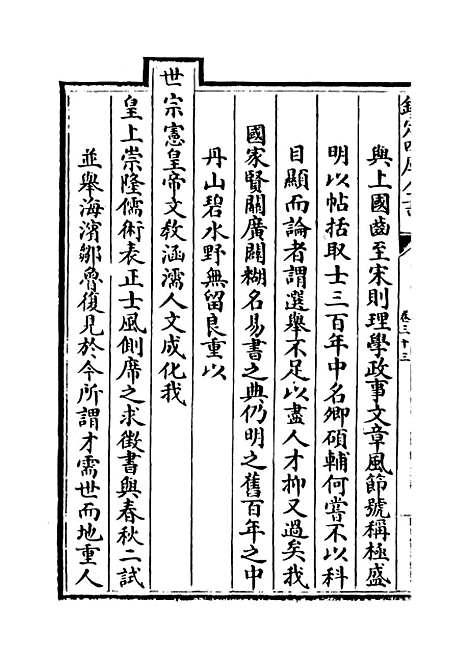 欽定四庫全書
卷三十三
與上國齒至宋則理學政事文章風節號稱極盛
明以帖括取士三百年中名卿碩輔何嘗不以科
目顯而論者謂選舉不足以盡人才抑又過矣我
國家賢關廣闢糊名易書之典仍明之舊百年之中
丹山碧水野無留良重以
世宗憲皇帝文教涵濡人文成化我
皇上崇隆儒術表正士風側席之求徵書與春秋二試
並舉海濱鄒魯復見於今所謂才需世而地重人